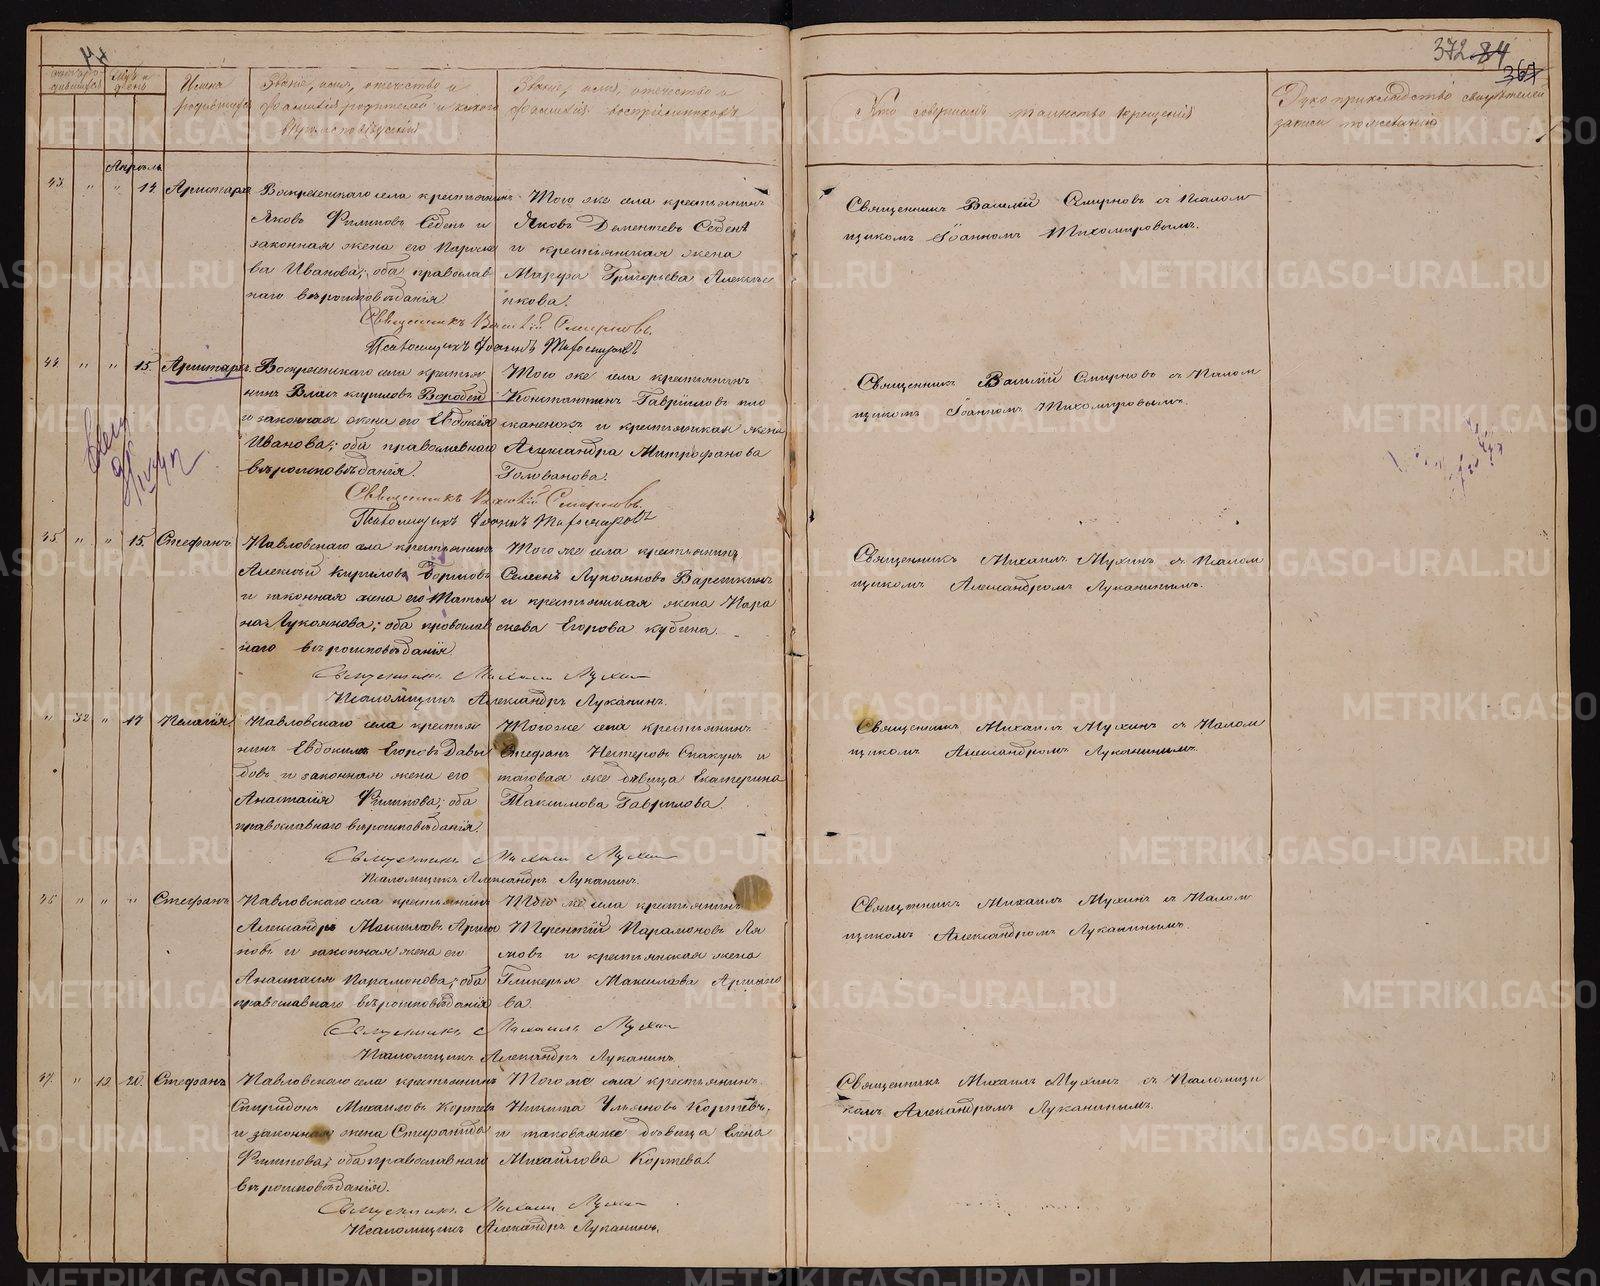 372 84
367
Счетъ ро-
дившихся
Мѣс. и
день
Имена
родившихся
Званіе, имя, отчество и
фамилія родителей и какого
вѣроисповѣданія
Званіе, имя, отчество и
фамилія воспріемниковъ
Кто совершалъ таинство крещенія
Рукоприкладство свидѣтелей
записи по желанію
Апрѣль
43. " " 14 Аристархъ
Воскресенскаго села крестьянинъ
Яковъ Филиповъ Седень и
законная жена его Параске
ва Иванова; оба православ
наго вѣроисповѣданія.
Того же села крестьянинъ
Яковъ Дементьевъ Седень
и крестьянская жена
Марфа Григорьева
пкова.
Священникъ Василій Смирновъ съ Псалом
щикомъ Іоанномъ Тихомировымъ.
Священникъ Василій Смирновъ.
Псаломщикъ Іоаннъ Тихомировъ
44. " " 15. Аристархъ.
Воскресенскаго села крестья
нинъ Влас Кириловъ Воробей
и законная жена его Евдокія
Иванова; оба православнаго
вѣроисповѣданія.
Того же села крестьянинъ
Константинъ Гавриловъ пло
сканенокъ и крестьянская жена
Александра Митрофанова
Голованова.
Священникъ Василій Смирновъ съ Псалом
щикомъ Іоанномъ Тихомировымъ.
Священникъ Василій Смирновъ.
Псаломщикъ Іоаннъ Тихомировъ
45 " " 15. Стефанъ.
Павловскаго села крестьянинъ
Алексѣй Кириловъ Борисовъ
и законная жена его Татья
на Лукоянова; оба православ
наго вѣроисповѣданія.
Того же села крестьянинъ
Селеенъ Лукояновъ Вареткинъ
и крестьянская жена Пара
скева Егорова кубина.
Священникъ Михаилъ Мухинъ съ Псалом
щикомъ Александромъ Луканинымъ.
Священникъ Михаилъ Мухинъ
Псаломщикъ Александръ Луканинъ.
" 32 " 17 Пелагія
Павловскаго села крестья
нинъ Евдокимъ Егоровъ Давы
довъ и законная жена его
Анастасія Филипова; оба
православнаго вѣроисповѣданія.
Того же села крестьянинъ
Стефанъ Нестеровъ Спакунъ и
таковая же дѣвица Екатерина
Максимова Гаврилова.
Священникъ Михаилъ Мухинъ съ Псалом
щикомъ Александромъ Луканинымъ.
Священникъ Михаилъ Мухинъ
Псаломщикъ Александръ Луканинъ.
46 " " " Стефанъ
Павловскаго села крестьянинъ
Александръ Максимовъ Аржа
новъ и законная жена его
Анастасія Парамонова; оба
православнаго вѣроисповѣданія
Того же села крестьянинъ
Терентій Парамоновъ Ля
ловъ и крестьянская жена
Гликерья Максимова Аржано
ва.
Священникъ Михаилъ Мухинъ съ Псалом
щикомъ Александромъ Луканинымъ.
Священникъ Михаилъ Мухинъ
Псаломщикъ Александръ Луканинъ.
47. " 19. 20. Стефанъ
Павловскаго села крестьянинъ
Спиридонъ Михаиловъ Коржевъ
и законная жена Стефанида
Филипова; оба православнаго
вѣроисповѣданія.
Того же села крестьянинъ
Никита Ульяновъ Коржевъ,
и таковая же дѣвица Елена
Михайлова Коржева.
Священникъ Михаилъ Мухинъ съ Псаломщи
комъ Александромъ Луканинымъ.
Священникъ Михаилъ Мухинъ
Псаломщикъ Александръ Луканинъ.
METRIKI.GASO-URAL.RU